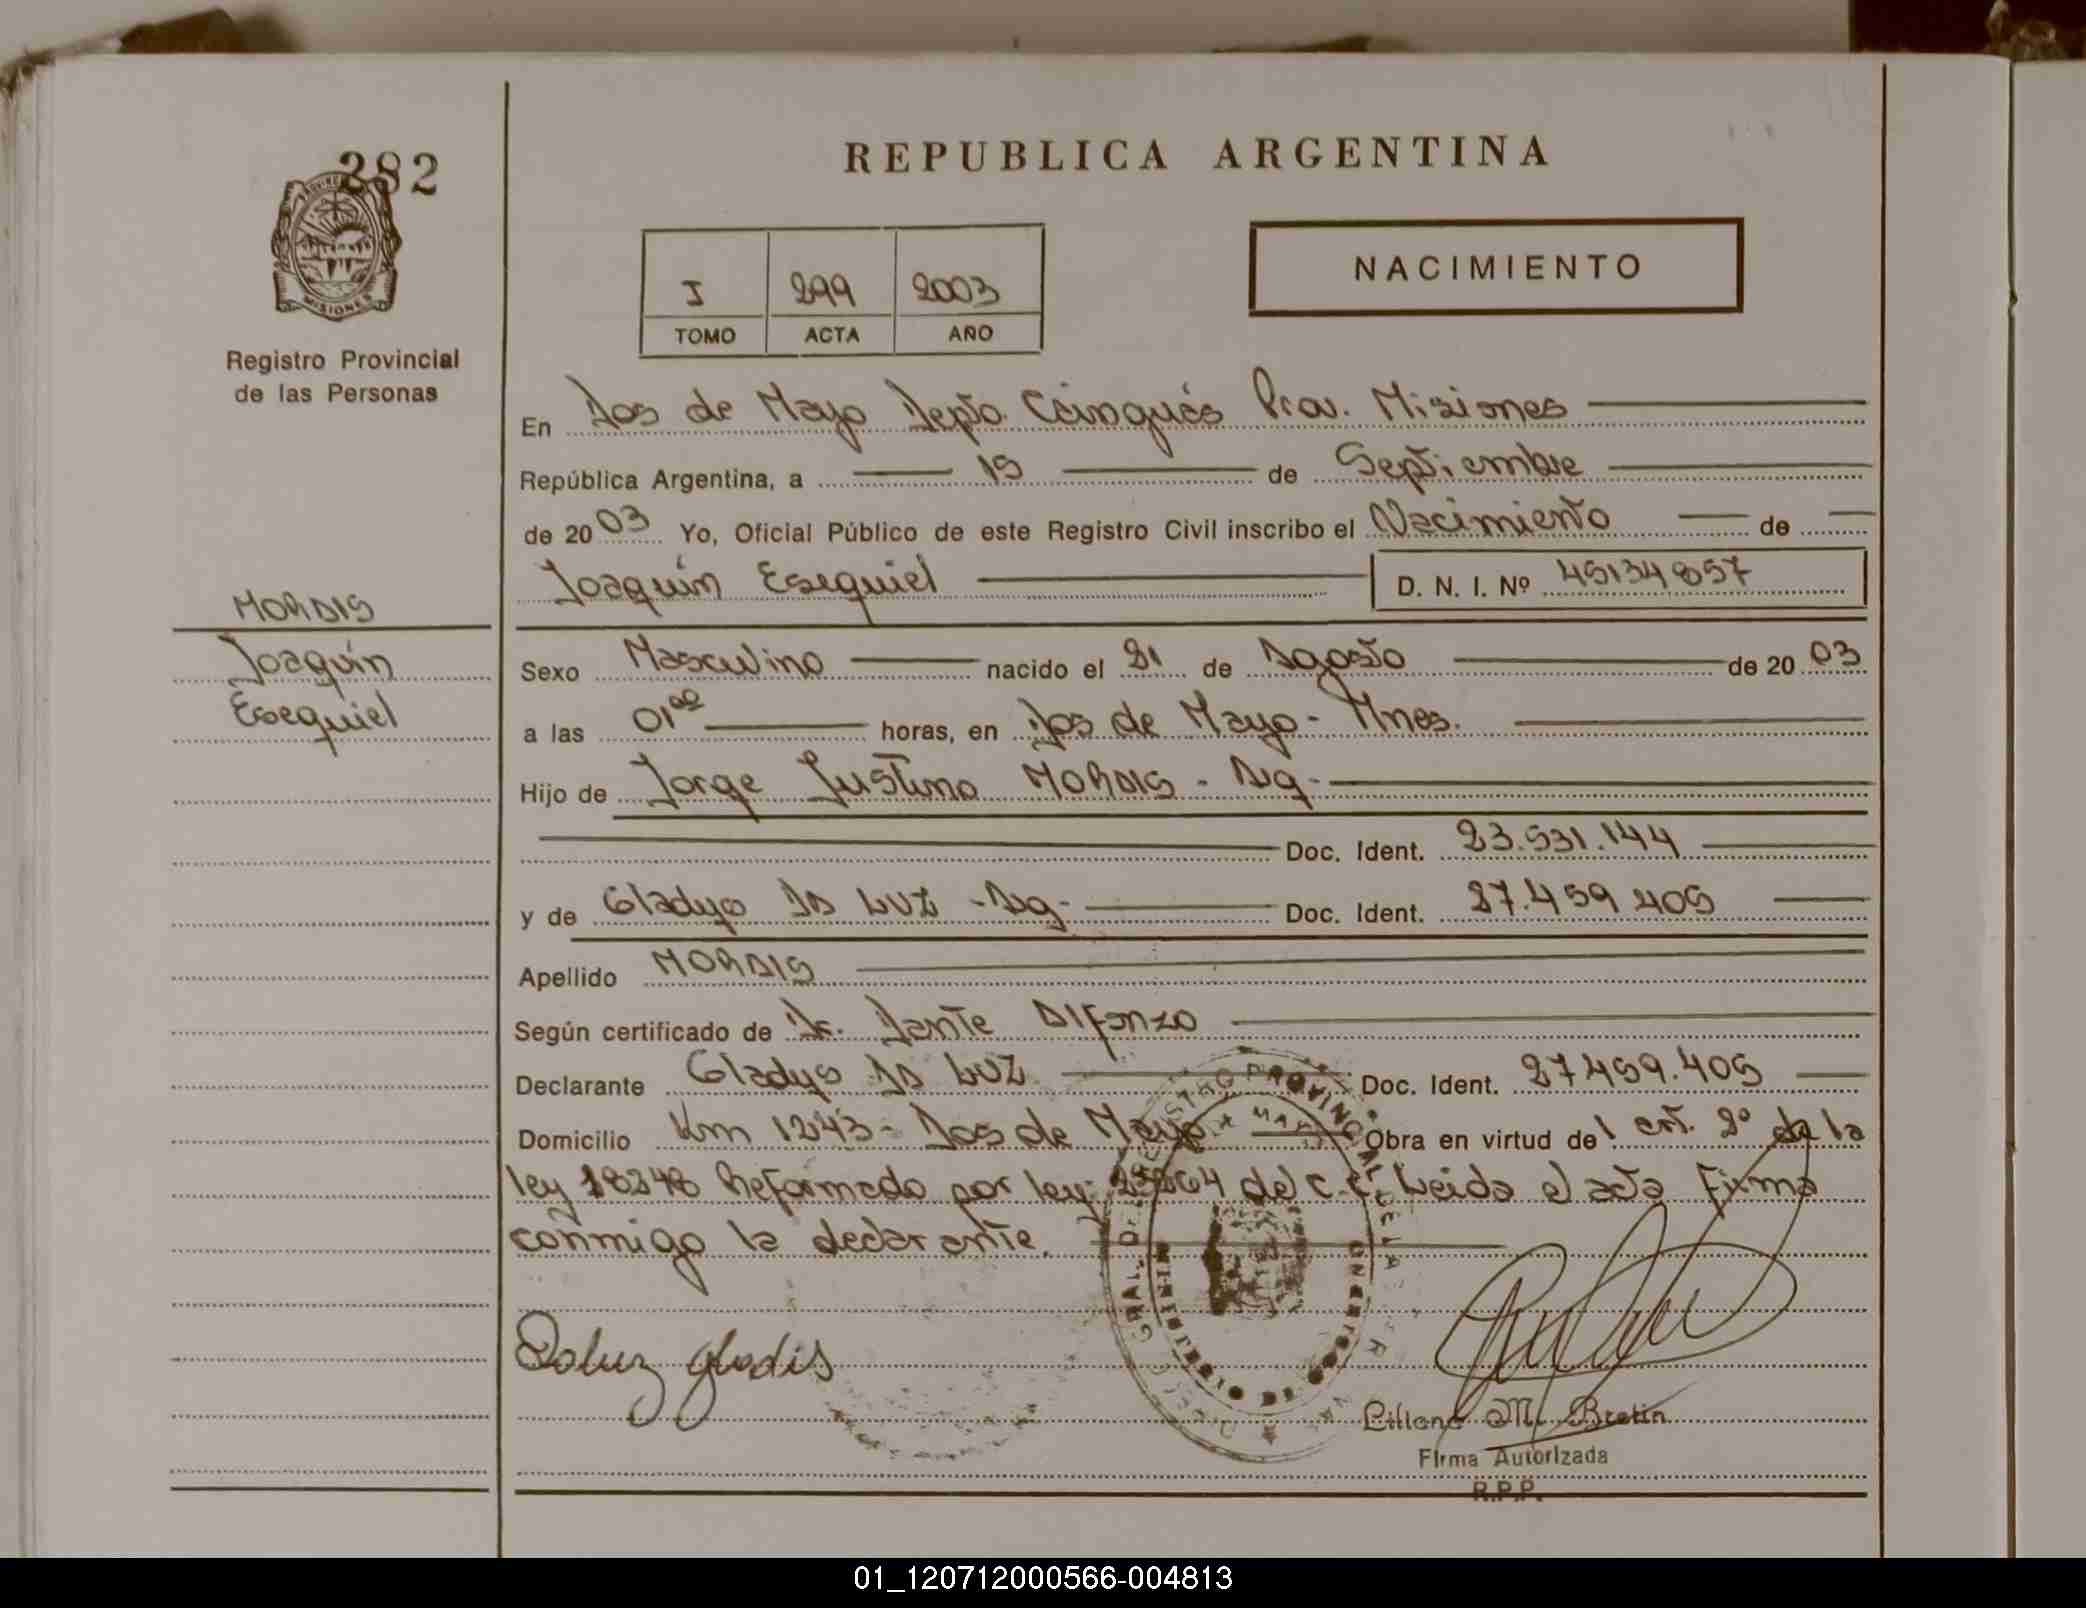 282
REPUBLICA ARGENTINA
NACIMIENTO
I 299 2003
TOMO ACTA AÑO
MISIONES
Registro Provincial
de las Personas
En Dos de Mayo Depto. Cainguás Prov. Misiones
República Argentina, a 15 de Septiembre
de 2003 Yo, Oficial Público de este Registro Civil inscribo el Nacimiento de
Joaquín Esequiel D. N. I. Nº 45134857
MORAIS
Joaquín
Esequiel
Sexo Masculino nacido el 21 de Agosto de 2003
a las 01 00 horas, en Dos de Mayo - Mnes.
Hijo de Jorge Justino MORAIS - Ag -
Doc. Ident. 23.531.144
y de Gladys DA LUZ - Ag - Doc. Ident. 27.459.405
Apellido MORAIS
Según certificado de Dr. Dante Alfonzo
Declarante Gladys DA LUZ Doc. Ident. 27.459.405
Domicilio Km 1243 - Dos de Mayo Obra en virtud del art. 2º de la
ley 18248 Reformado por ley 23264 del C.C. Leida el acta Firma
conmigo la declarante.
Daluz gladis
Liliana M. Bretin
Firma Autorizada
R.P.P.
01_120712000566-004813